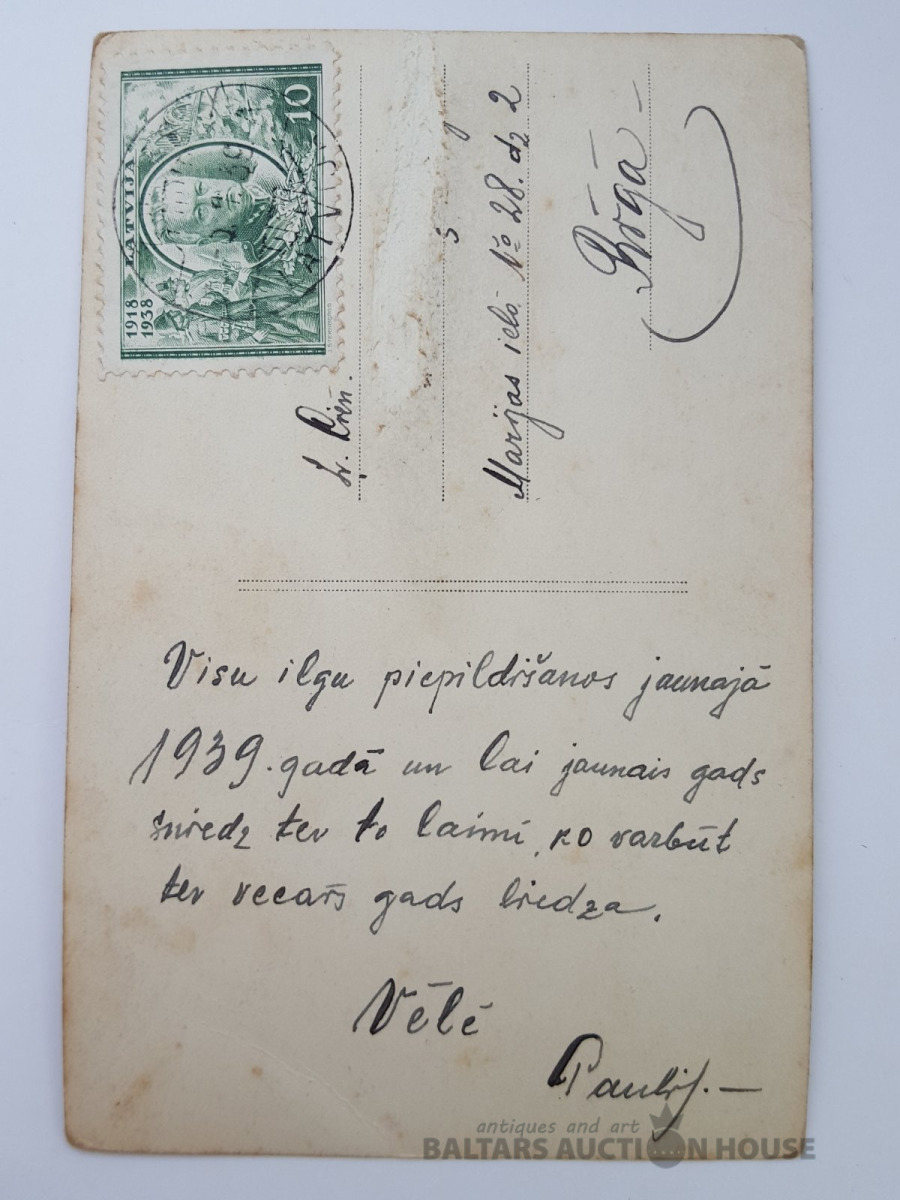 LATVIJA
10
1918
1938
LATVIJA
Lr. Krēn.
Marijas ielā № 28. dz 2
Rīgā
Visu ilgu piepildīšanos jaunajā
1939. gadā un lai jaunais gads
sniedz tev to laimi, ko varbūt
tev vecais gads liedza.
Vēlē
Paulis.
antiques and art
BALTARS AUCTION HOUSE